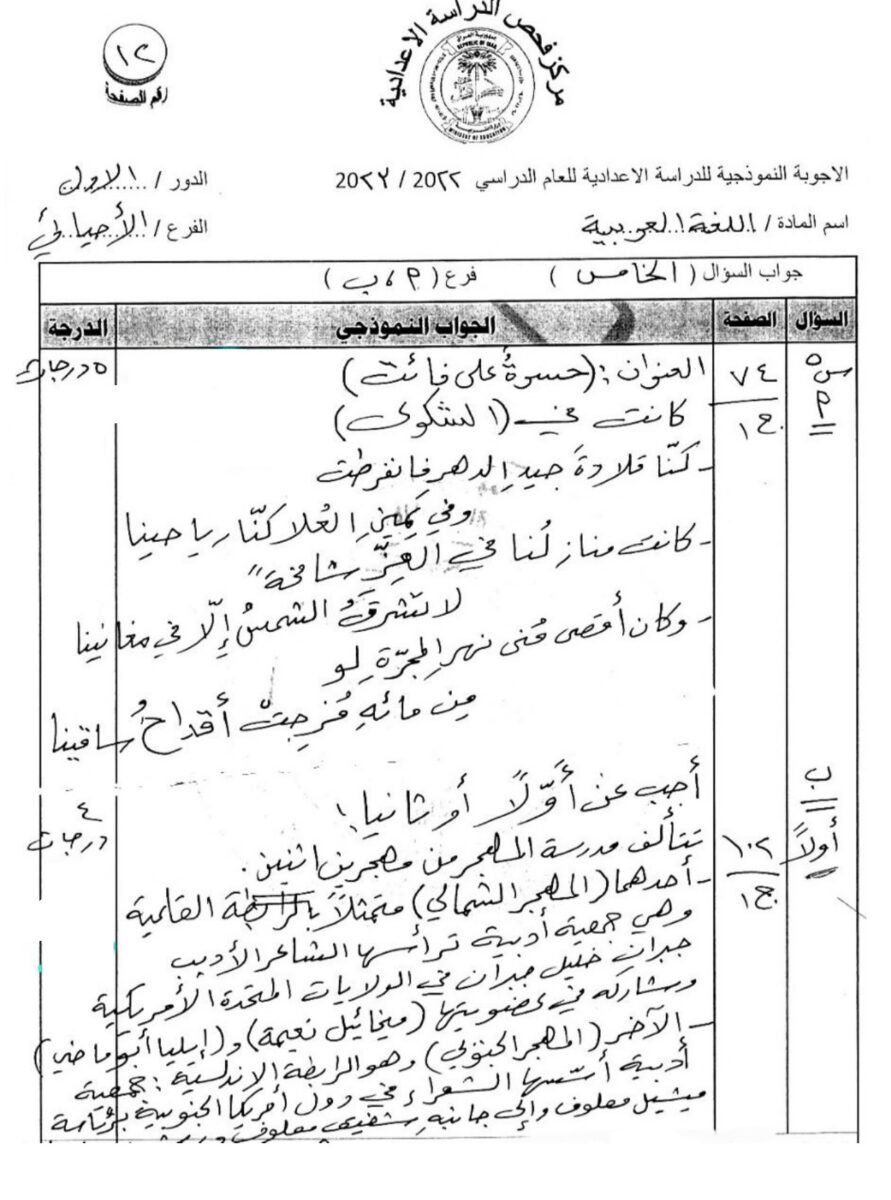 مركز فحص الدراسة الاعدادية
جمهورية العراق
REPUBLIC OF IRAQ
MINISTRY OF EDUCATION
١٢
رقم الصفحة
الاجوبة النموذجية للدراسة الاعدادية للعام الدراسي ٢٠٢٢ / ٢٠٢٢
الدور / الاول
اسم المادة / اللغة العربية
الفرع / الأحيائي
جواب السؤال ( الخامس ) فرع ( ٢ ، ب )
السؤال الصفحة الجواب النموذجي الدرجة
س٥ ٧٤ العنوان : (حسرةٌ على فائت) ٥ درجات
٢ ج١ كانت في (الشكوى)
- كنّا قلادةَ جيدِ الدهرِ فانفرطت
وفي يمينِ العُلا كنّا رياحينا
- كانت منازلُنا في العِزِّ شامخةً
لا تشرقُ الشمسُ إلّا في مغانينا
- وكان أقصى مُنى نهرِ المجرّةِ لو
مِن مائهِ مُزِجتْ أقداحُ ساقينا
ب أجب عن أوّلًا أو ثانيا :
أولاً ١٠٢ تتألف مدرسة المهجر من مهجرين اثنين . ٤ درجات
ج١ - أحدهما (المهجر الشمالي) متمثلاً بالرابطة القلمية
وهي جمعية أدبية ترأسها الشاعر الأديب
جبران خليل جبران في الولايات المتحدة الأمريكية
وشاركه في عضويتها (ميخائيل نعيمة) و (إيليا أبو ماضي)
- الآخر (المهجر الجنوبي) وهو الرابطة الاندلسية : جمعية
أدبية أسّسها الشعراء في دول أمريكا الجنوبية برئاسة
ميشيل معلوف وإلى جانبهِ شفيق معلوف